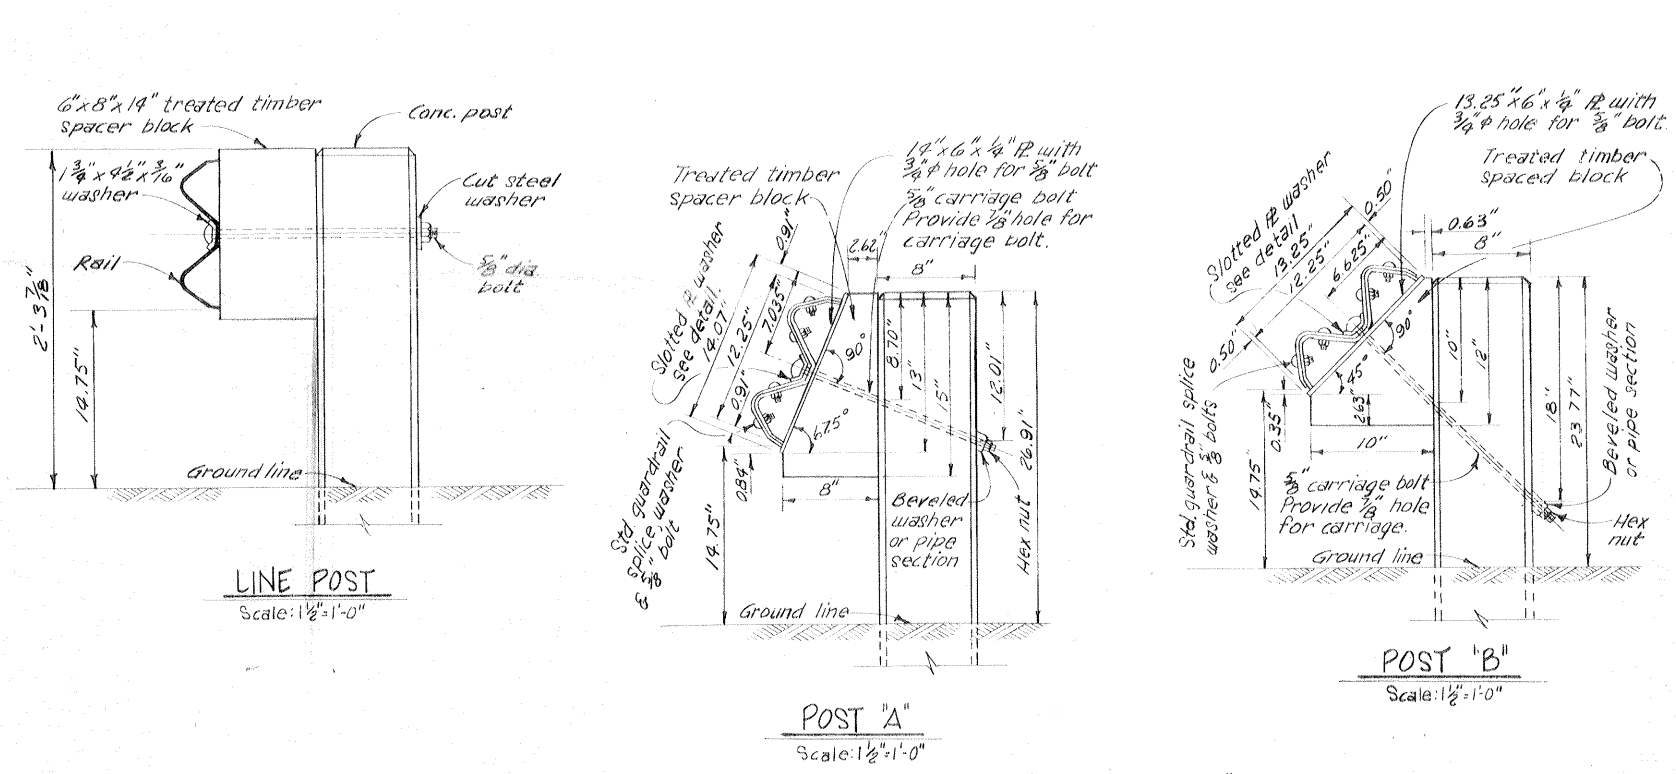 6"x8"x14" treated timber
spacer block
Conc. post
1 3/4" x 4 1/2" x 3/16"
washer
Cut steel
washer
Rail
5/8" dia.
bolt
2'-3 7/8"
14.75"
Ground line
LINE POST
Scale: 1 1/2"=1'-0"
Treated timber
spacer block
14"x6"x1/4" PL with
3/4"Φ hole for 5/8" bolt
5/8" carriage bolt
Provide 7/8" hole for
carriage bolt.
Slotted PL washer
see detail.
0.91"
14.07"
12.25"
7.035"
0.91"
2.62"
8"
90°
67.5°
8.70"
13"
15"
12.01"
26.91"
0.84"
14.75"
8"
Std. guardrail
splice, washer
& 5/8" bolt
Beveled
washer
or pipe
section
Hex nut
Ground line
POST "A"
Scale: 1 1/2"=1'-0"
13.25"x6"x1/4" PL with
3/4"Φ hole for 5/8" bolt.
Treated timber
spaced block
Slotted PL washer
see detail
0.50"
13.25"
12.25"
6.625"
0.50"
0.63"
8"
90°
45°
10"
12"
18"
23.77"
0.35"
2.63"
10"
14.75"
Std. guardrail splice
washer & 5/8" bolts
5/8" carriage bolt
Provide 7/8" hole
for carriage.
Beveled washer
or pipe section
Hex
nut
Ground line
POST "B"
Scale: 1 1/2"=1'-0"